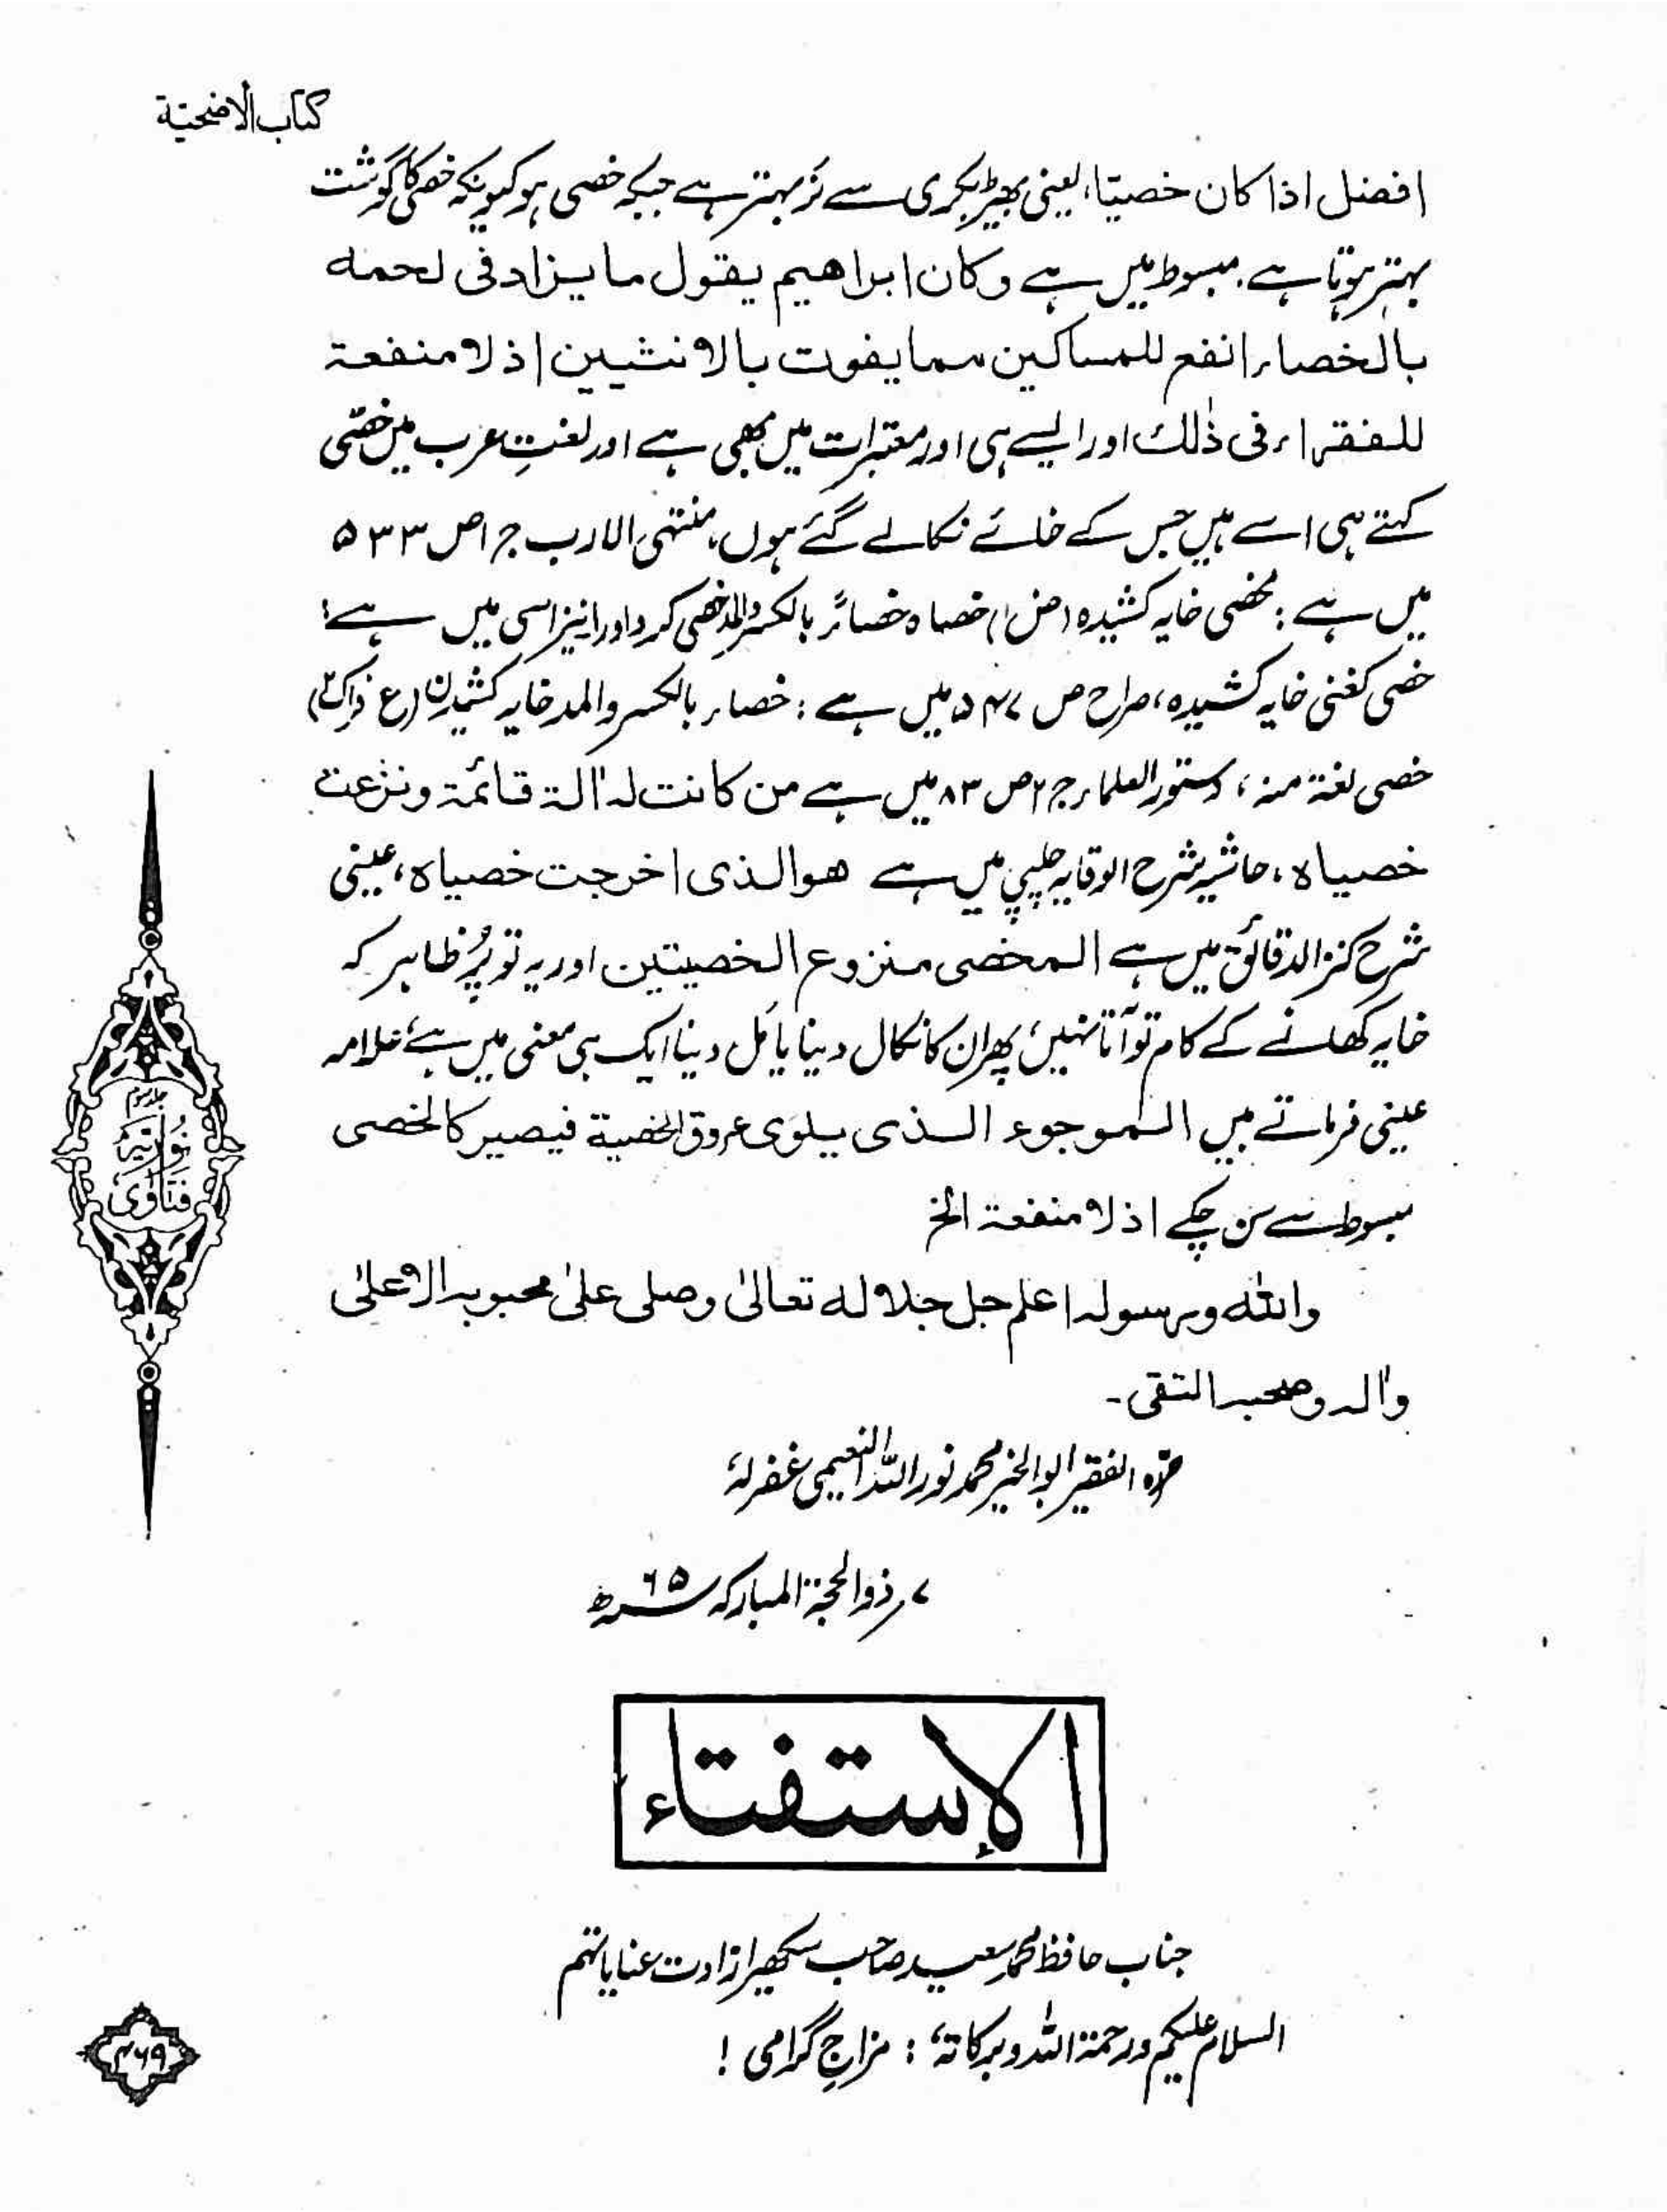 کتاب الاضحیۃ
افضل اذا کان خصیتا، یعنی بھیڑ بکری سے نر بہتر ہے جبکہ خصی ہو کیونکہ خصی کا گوشت
بہتر ہوتا ہے، مبسوط میں ہے وکان ابراھیم یقول ما یزاد فی لحمہ
بالخصاء انفع للمساکین مما یفوت بالانثیین اذ لا منفعۃ
للفقراء فی ذٰلک اور ایسے ہی اور معتبرات میں بھی ہے اور لغتِ عرب میں خصّی
کہتے ہی اسے ہیں جس کے خائے نکالے گئے ہوں، منتہی الارب ج ۱ ص ۵۳۳
میں ہے: مخصی خایہ کشیدہ (ض) خصاہ خصاءً بالکسر والمد خصی کرد اور نیز اسی میں ہے:
خصی کغنی خایہ کشیدہ، صراح ص ۵۴۷ میں ہے: خصاء بالکسر والمد خایہ کشیدن
خصی لغۃ منہ، دستور العلماء ج ۲ ص ۸۳ میں ہے من کانت لہ اٰلۃ قائمۃ ونزعت
خصیاہ، حاشیہ شرح الوقایہ چلپی میں ہے ھو الذی اخرجت خصیاہ، عینی
شرح کنز الدقائق میں ہے المخصی منزوع الخصیتین اور یہ تو پُر ظاہر کہ
خایہ کھانے کے کام تو آتا نہیں، پھر ان کا نکال دینا یا مَل دینا ایک ہی معنی میں ہے، علامہ
عینی فرماتے ہیں الموجوء الذی یلوی عروق الخصیۃ فیصیر کالخصی
مبسوط سے سن چکے اذ لا منفعۃ الخ
واللہ ورسولہ اعلم جل جلالہ تعالیٰ وصلی علیٰ محبوبہ الاعلیٰ
واٰلہ وصحبہ التقی۔
حرّہ الفقیر ابو الخیر محمد نور اللہ النعیمی غفرلہٗ
۷ر ذوالحجۃ المبارکہ ۶۵ھ
الإستفتاء
جناب حافظ محمد سعید صاحب سکھیرا زادت عنایاتہم
السلام علیکم ورحمۃ اللہ وبرکاتہٗ: مزاجِ گرامی!
جلد سوم
نوریہ
فتاوی
۴۶۹